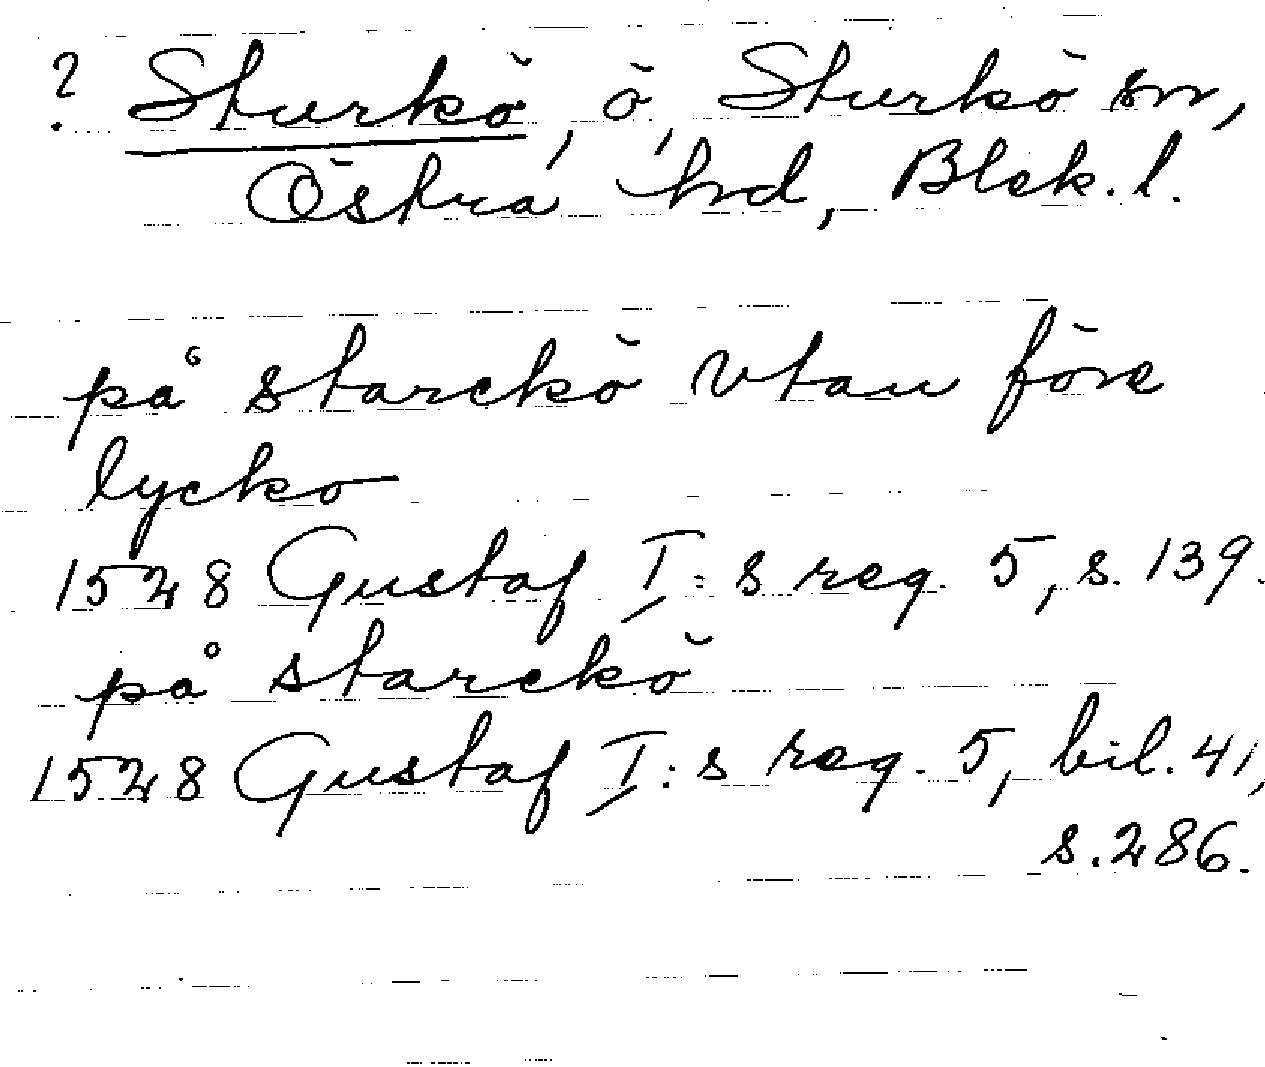 ? Sturkö, ö, Sturkö sn,
Östra hd, Blek. l.
på starckö vtan före
lycko
1528 Gustaf I:s reg. 5, s. 139.
på starckö
1528 Gustaf I:s reg. 5, bil. 41,
s. 286.